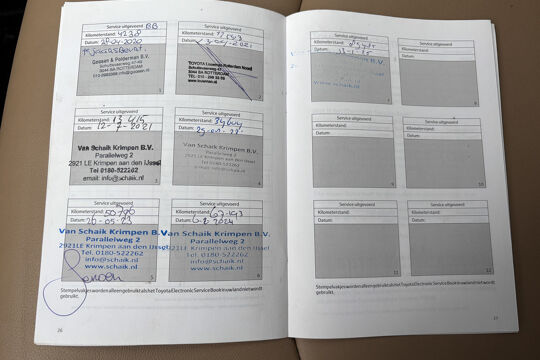 Service uitgevoerd BB
Kilometerstand: 4238
Datum: 28-04-2020
Goosen & Polderman B.V.
3044 BA ROTTERDAM
1
Service uitgevoerd
Kilometerstand:
Datum:
3044 BA ROTTERDAM
www.louwman.nl
2
Service uitgevoerd
Kilometerstand: 13415
Datum: 12-7-2021
Van Schaik Krimpen B.V.
Parallelweg 2
2921 LE Krimpen aan den IJssel
Tel 0180-522262
email: info@schaik.nl
3
Service uitgevoerd
Kilometerstand:
Datum:
Van Schaik Krimpen B.V.
Parallelweg 2
2921 LE Krimpen aan den IJssel
Tel. 0180-522262
info@schaik.nl
4
Service uitgevoerd
Kilometerstand: 50790
Datum: 26-05-23
Van Schaik Krimpen B.V.
Parallelweg 2
2921LE Krimpen aan den IJssel
Tel. 0180-522262
info@schaik.nl
www.schaik.nl
5
Service uitgevoerd
Kilometerstand: 67-193
Datum: 6-2-2024
Van Schaik Krimpen B.V.
Parallelweg 2
Krimpen aan den IJssel
Tel. 0180-522262
info@schaik.nl
www.schaik.nl
6
Stempelvakjes worden alleen gebruikt als het Toyota Electronic Service Book in uw land niet wordt
gebruikt.
26
Service uitgevoerd
Kilometerstand:
Datum:
7
Service uitgevoerd
Kilometerstand:
Datum:
8
Service uitgevoerd
Kilometerstand:
Datum:
9
Service uitgevoerd
Kilometerstand:
Datum:
10
Service uitgevoerd
Kilometerstand:
Datum:
11
Service uitgevoerd
Kilometerstand:
Datum:
12
Stempelvakjes worden alleen gebruikt als het Toyota Electronic Service Book in uw land niet wordt
gebruikt.
27